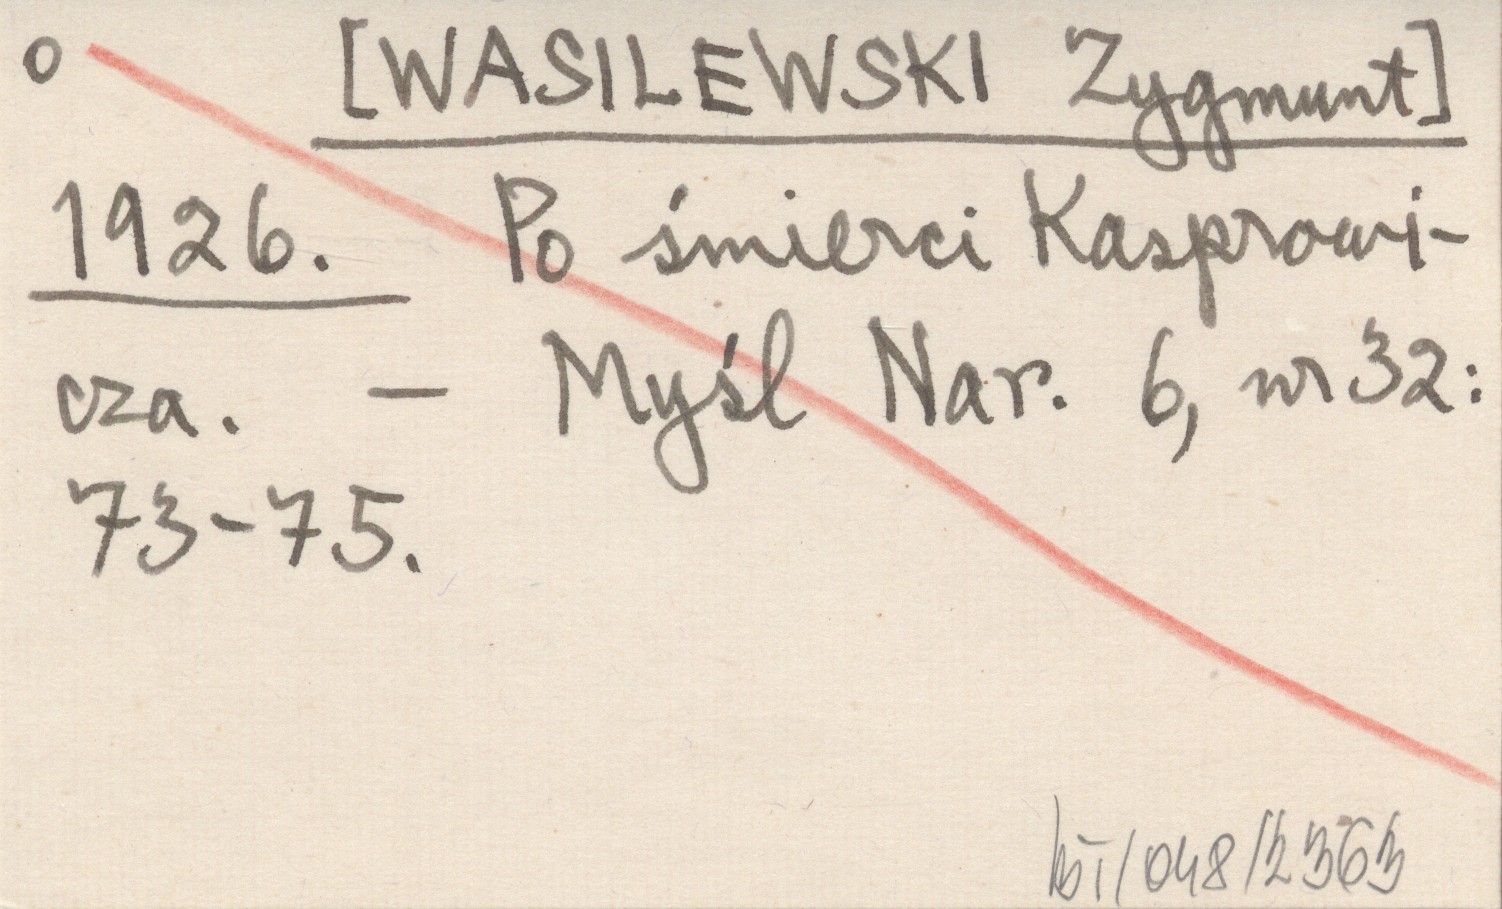 o [WASILEWSKI Zygmunt]
1926. Po śmierci Kasprowi-
cza. — Myśl Nar. 6, nr 32:
73-75.
/048/2363